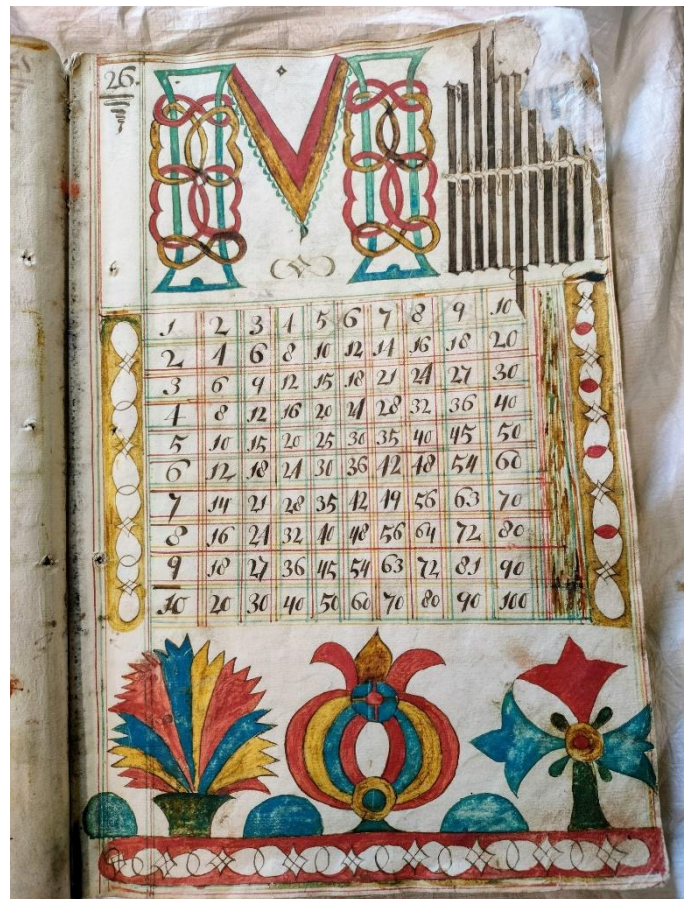 26.
M
1 2 3 4 5 6 7 8 9 10
2 4 6 8 10 12 14 16 18 20
3 6 9 12 15 18 21 24 27 30
4 8 12 16 20 24 28 32 36 40
5 10 15 20 25 30 35 40 45 50
6 12 18 24 30 36 42 48 54 60
7 14 21 28 35 42 49 56 63 70
8 16 24 32 40 48 56 64 72 80
9 18 27 36 45 54 63 72 81 90
10 20 30 40 50 60 70 80 90 100